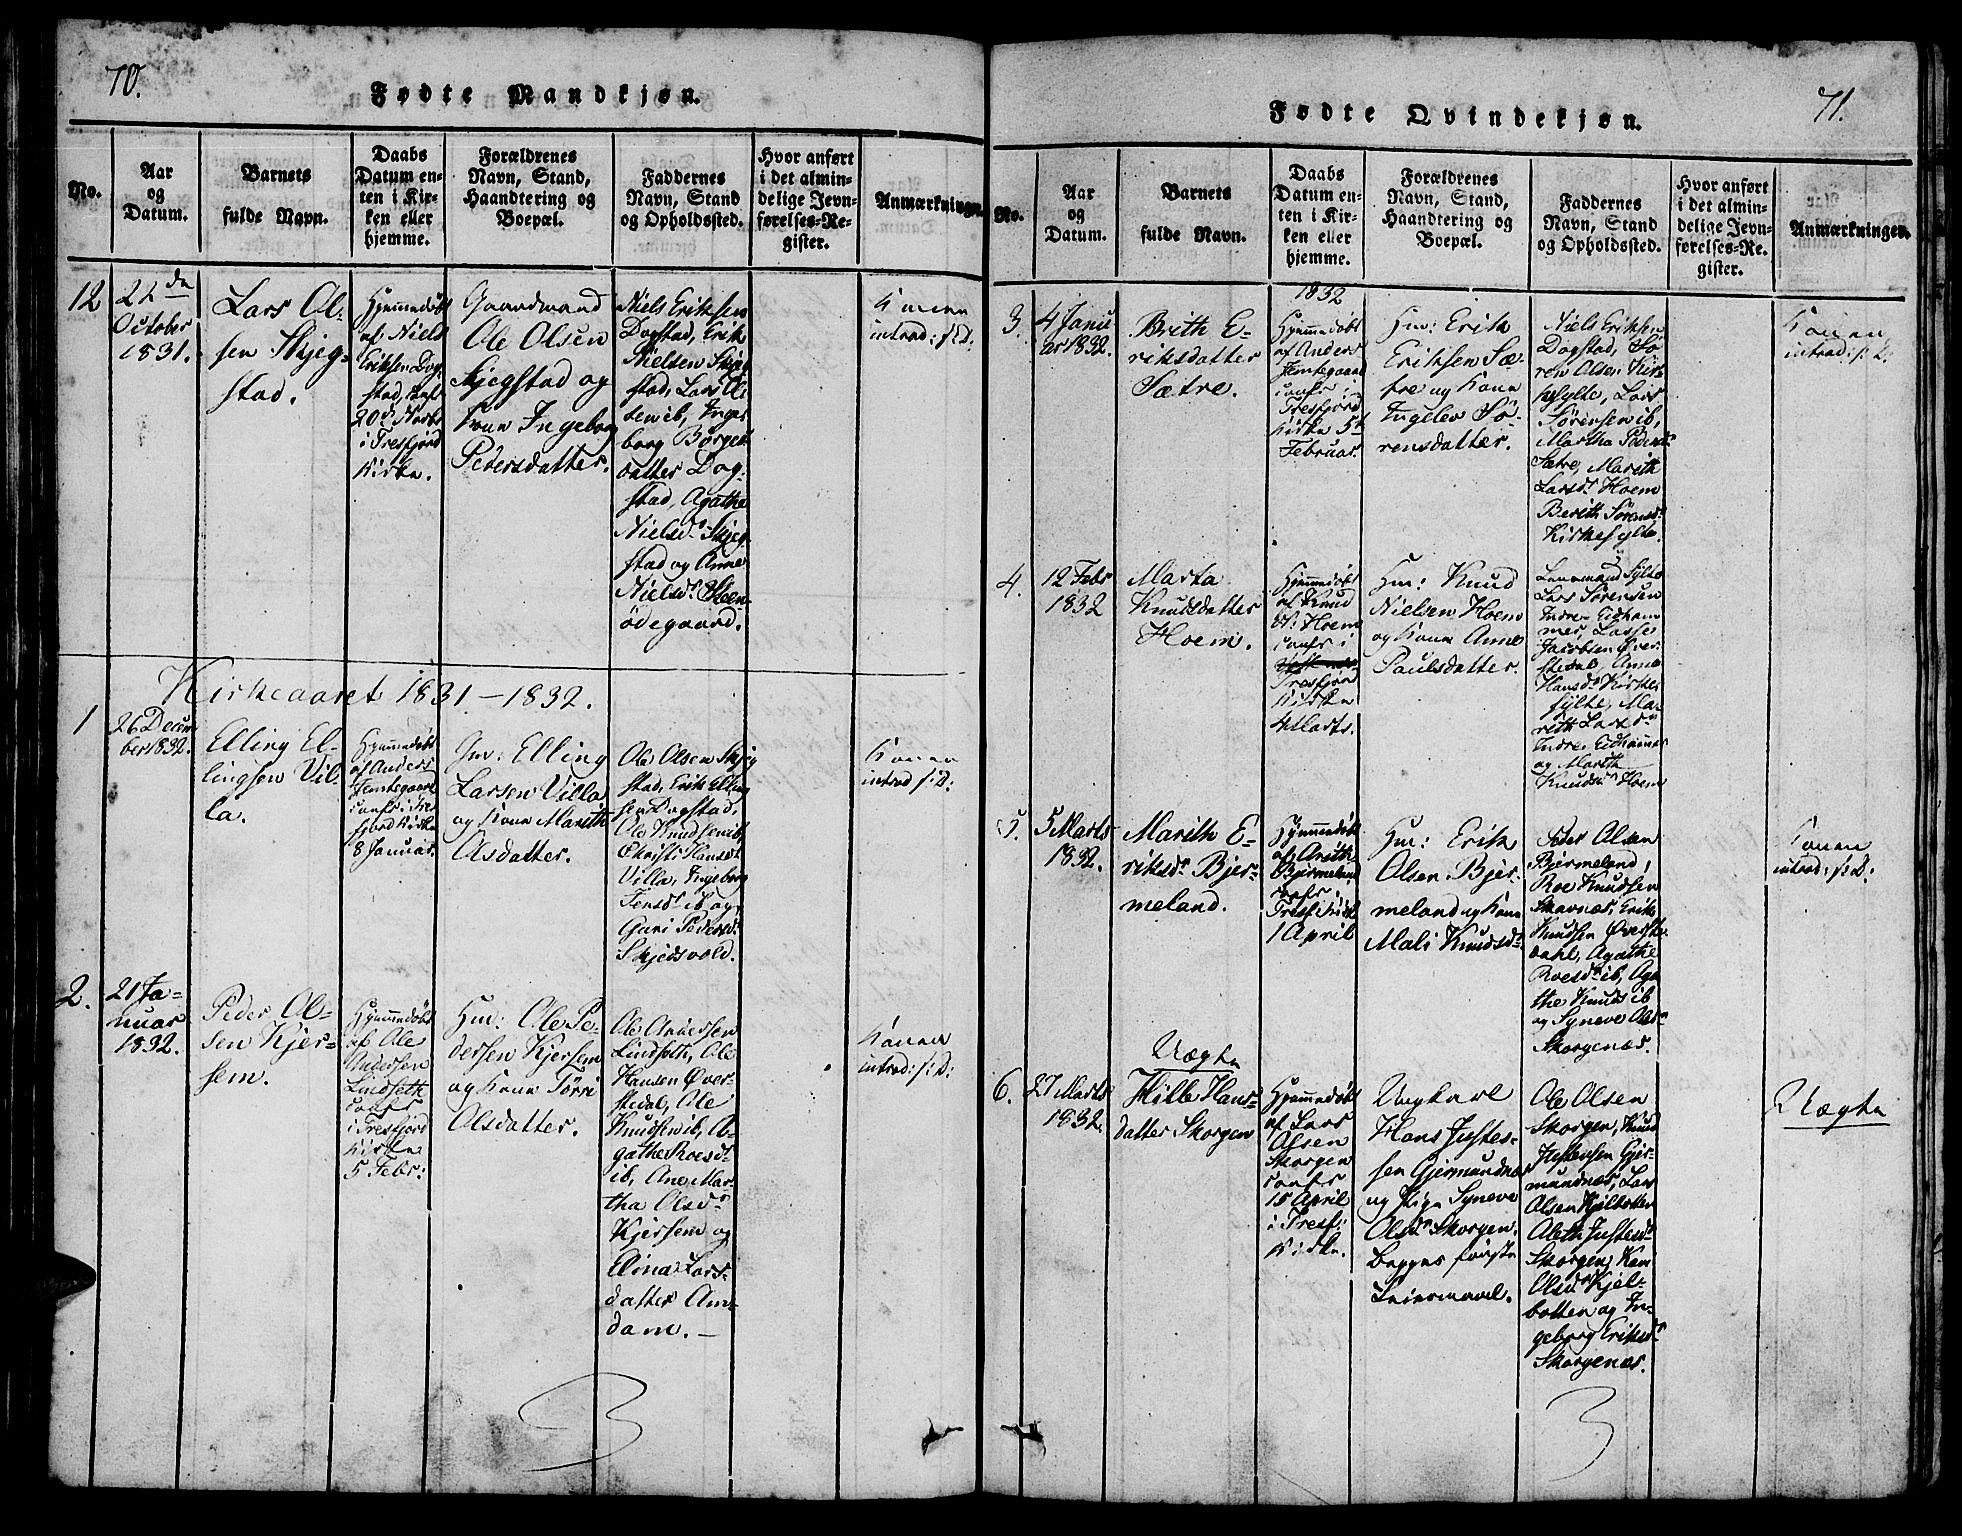 70.
Fødte Mandkjøn.
No.
Aar
og
Datum.
Barnets
fulde Navn.
Daabs
Datum en-
ten i Kir-
ken eller
hjemme.
Forældrenes
Navn, Stand,
Haandtering og
Boepæl.
Faddernes
Navn, Stand
og Opholdssted.
Hvor anført
i det almin-
delige Jevn-
førelses-Re-
gister.
Anmærkninger.
12
October
1831.
Lars Ol-
sen Skjeg-
stad.
Hjemmedøbt
af Niels
Eriksen Dog-
stad,
i Tresfjord
Kirke.
Gaardmand
Ole Olsen
Skjegstad og
Kone Ingeborg
Pedersdatter.
Niels Eriksen
Dogstad, Erik
Nielsen Skjeg
stad, Lars Ol
sen ib, Inge-
borg Børges-
datter Dog-
stad, Agathe
Nielsd. Skjeg-
stad og Anne
Nielsd. Steen-
ødegaard.
Konen
introd: s: D:
Kirkeaaret 1831-1832.
1
26 Decem
ber 1832.
Elling El-
lingsen Vil-
la.
Hjemmedøbt
af Anders
Jemtegaard
confr i Tres
fjord Kirke
8 Januar.
Gm: Elling
Larsen Villa
og Kone Marith
Olsdatter.
Ole Olsen Skjeg
stad, Erik Elling
sen Dogstad,
Ole Knudsen ib,
Christi Hansd
Villa, Ingeborg
Jensd ib og
Guri Pedersd.
Skjedsvold.
Konen
introd: s: D:
2.
21 Ja-
nuar
1832.
Peder Ol-
sen Kjer-
sem.
Hjemmedøbt
af Ole
Andersen
Lindseth
confr
i Tresfjord
Kirke
5 Febr:
Hm: Ole Pe-
dersen Kjersem
og Kone Törri
Olsdatter.
Ole Andersen
Lindseth, Ole
Hansen Øver-
stedal, Ole
Knudsen ib, A-
gathe Roesd
ib, Ane Mar-
tha Olsd
Kjersem og
Elina Lars-
datter Am-
dam.
Konen
introd: s: D:
71.
Fødte Qvindekjøn.
No.
Aar
og
Datum.
Barnets
fulde Navn.
Daabs
Datum en-
ten i Kir-
ken eller
hjemme.
Forældrenes
Navn, Stand,
Haandtering og
Boepæl.
Faddernes
Navn, Stand
og Opholdssted.
Hvor anført
i det almin-
delige Jevn-
førelses-Re-
gister.
Anmærkninger.
3.
4 Janu
ar 1832.
Brith E-
riksdatter
Sætre.
1832
Hjemmedøbt
af Anders
Jemtegaard
confr i
Tresfjord
Kirke 5t
Februar.
Hm: Erik
Eriksen Sæ-
tre og Kone
Ingelev Sö-
rensdatter.
Niels Eriksen
Dogstad, Sø
ren Olsen Kir
kesylte, Lars
Sørensen ib,
Martha Pedersd
Sætre, Marith
Larsd Hoem
Berith Sørensd
Kirkesylte.
Konen
introd: s: D.
4.
12 Febr
1832
Marta
Knudsdatter
Hoem.
Hjemmedøbt
af Knud
N: Hoem
confr i
Tresfjord
Kirke
4 Marts.
Hm: Knud
Nielsen Hoem
og Kone Anne
Paulsdatter.
Lars Sørensen
Indre-Eidham
mer, Lasse
Jacobsen Øver
stedal, Anne
Hansd Kirke
sylte, Ma-
rith Larsd
Indre Eidhammer
og Marith
Knudsd Hoem
5.
5 Marts
1832.
Marith E-
riksd. Bjer-
meland.
Hjemmedøbt
af Marith
Bjermeland
confr i
Tresf: Kirke
1 April
Hm: Erik
Olsen Bjer-
meland og Kone
Mali Knudsd
Peder Olsen
Bjermeland,
Roe Knudsen
Skavnæs, Erik
Knudsen Øverste
dahl, Agathe
Roesd ib, Aga
the Knuds ib
og Syneve Olsd
Skorgenæs.
Konen
introd: s: D:
6.
27 Marts
1832.
Uægte
Hille Hans-
datter Skorgen
Hjemmedøbt
af Lars
Olsen
Skorgen
confr
15 April
i Tresf:
Kirke.
Ungkarl
Hans Justes-
sen Gjermundnæs
og Pige Syneve
Olsd Skorgen.
Begges første
Leiermaal.
Ole Olsen
Skorgen, Knud
Justensen Gjer-
mundnæs, Lars
Olsen Kjelbotten
Aleth Justesd
Skorgen, Kari
Olsd Kjel-
botten og In-
geborg Eriksd
Skorgenæs.
Uægte